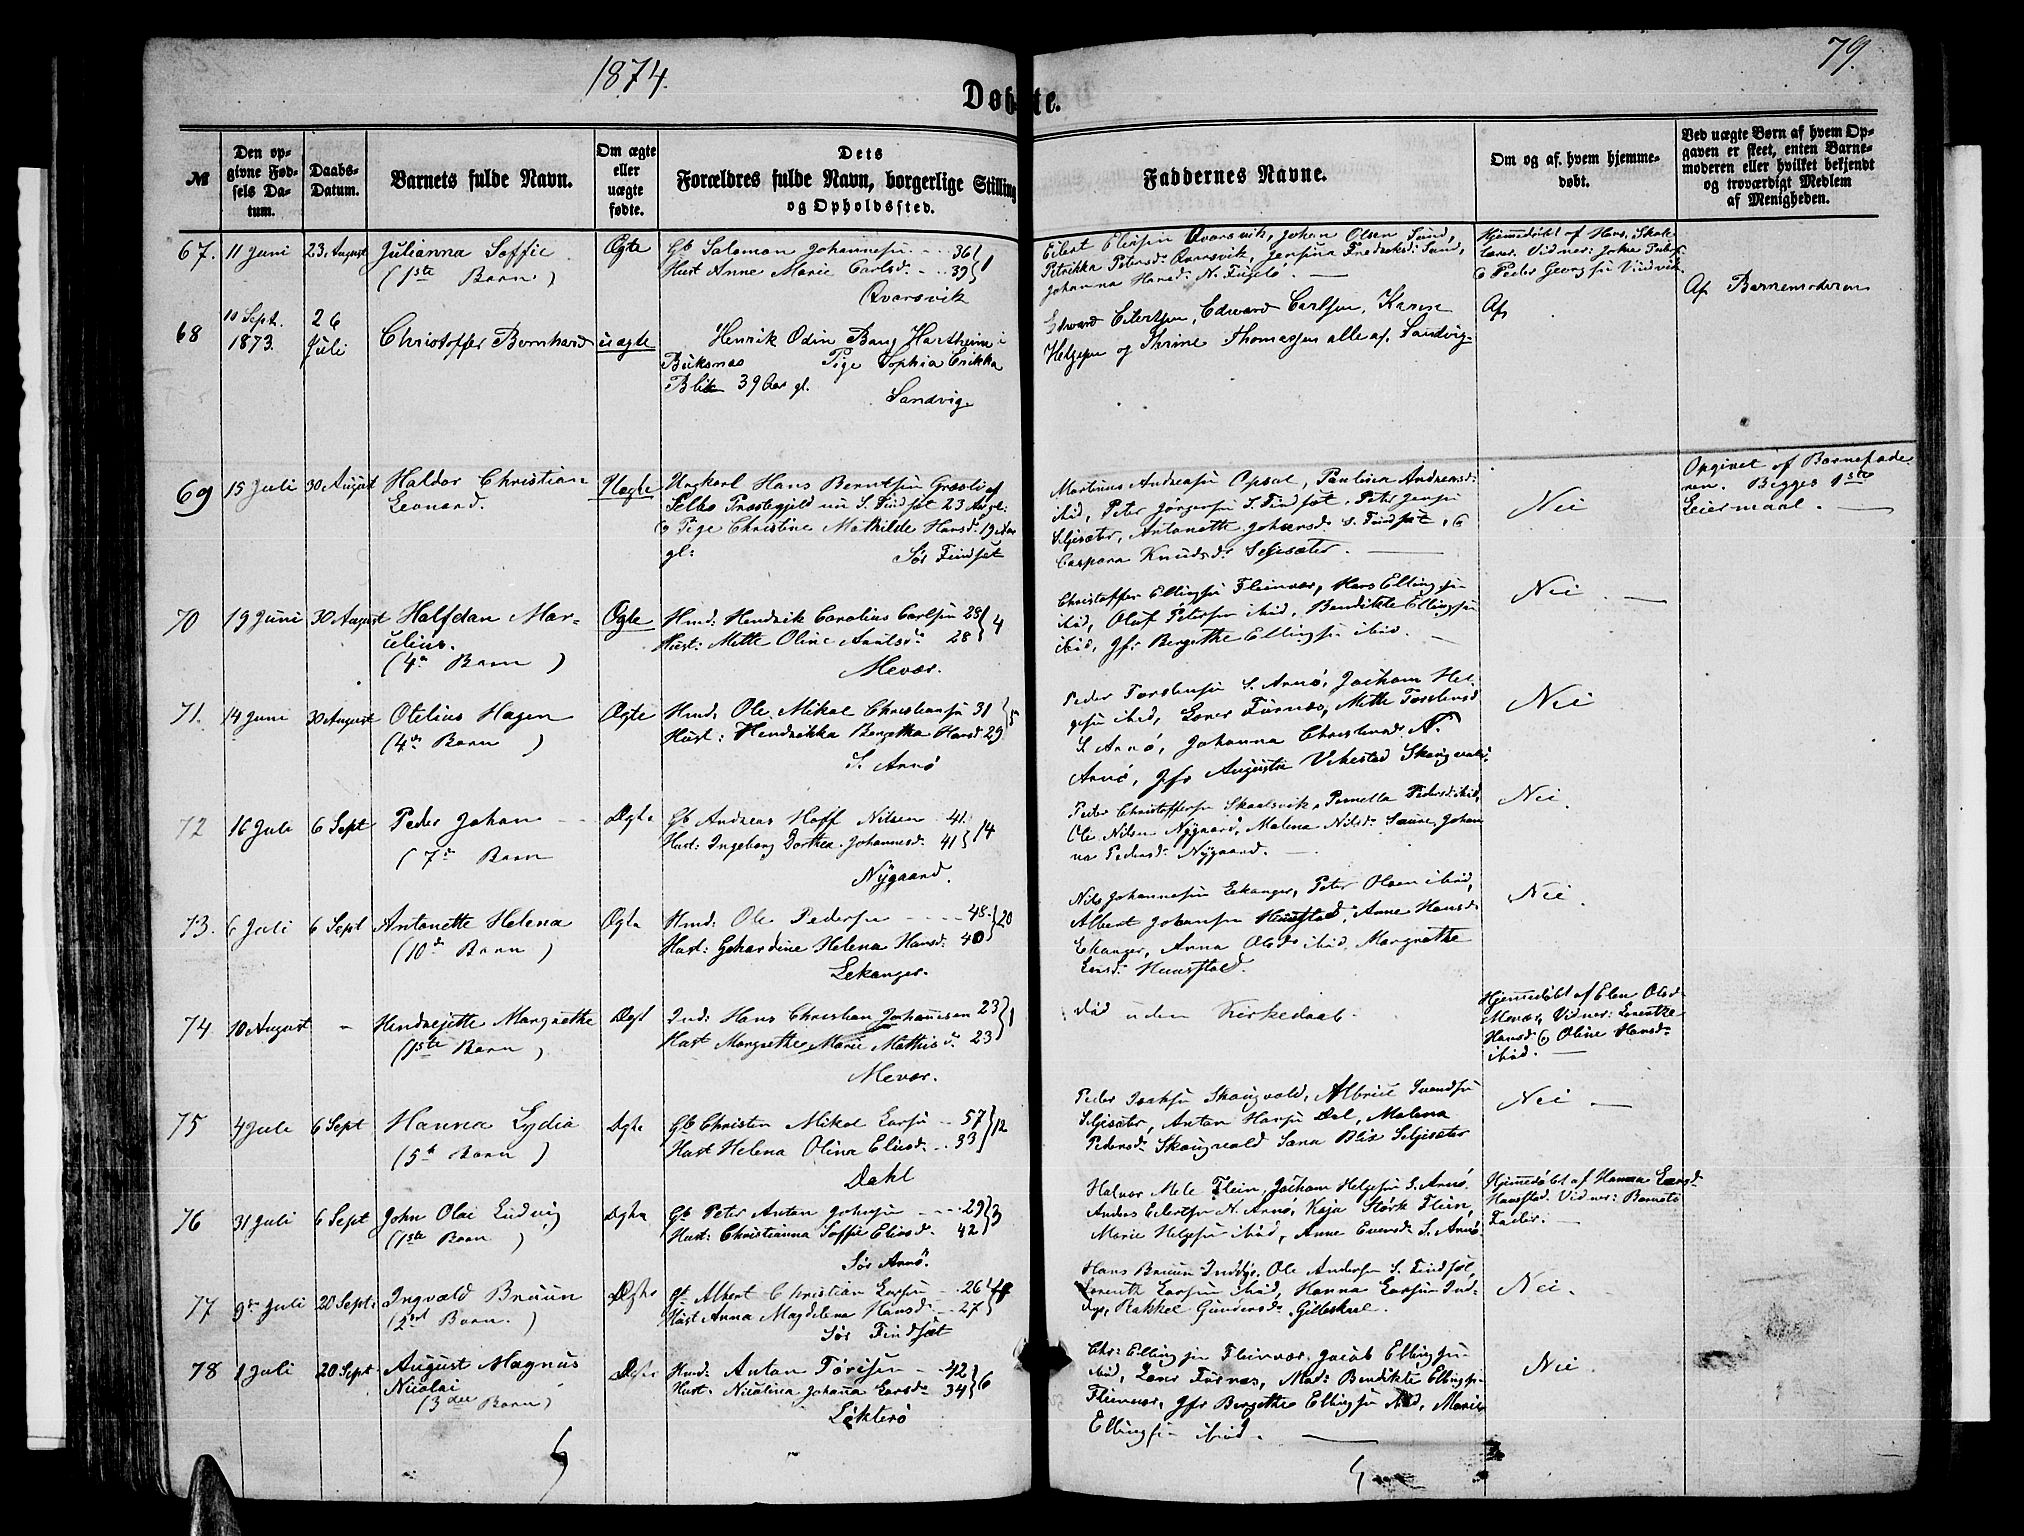 1874.
79.
Døbte.
№
Den opgivne Fødsels Datum.
Daabs-Datum.
Barnets fulde Navn.
Om ægte eller uægte fødte.
Dets Forældres fulde Navn, borgerlige Stilling og Opholdssted.
Faddernes Navne.
Om og af hvem hjemmedøbt.
Ved uægte Børn af hvem Opgaven er skeet, enten Barnemoderen eller hvilket bekjendt og troværdigt Medlem af Menigheden.
67. 11 Juni 23. August Julianna Soffie Ægte Gb Salomon Johannesen 36 1
(1ste Barn) Hust Anne Marie Carlsd. 39
Qvarsvik
Eilert Qvarsvik, Johan Olsen Sund,
Petrikka Petersd. Qvarsvik, Jensina Fredriksd. Sund,
Johanna Hansd. N. Fuglø.
Hjemmedøbt af Skolelærer. Vidner:
68 10 Sept. 1873. 26 Juli Christoffer Bernhard uægte Henrik Odin Bang Hartheim i
Buksnæs Pige Sophia Erikka
Blix 39 Aar gl.
Sandvig
Edvard Eilertsen, Edvard Carlsen, Karen
Helgesen og Thrine Thomassen alle af Sandvig
Af
Af Barnemoderen
69 15 Juli 30 August Haldor Christian Leonard. Uægte Ungkarl Hans Berntsen Græsli af
Selbo Præstegjeld nu S. Findset 23 Aar gl:
& Pige Christine Mathilde Hansd. 19 Aar
gl:
Sør Findset
Martinus Andreasen Opsal, Paulina Andreasd:
ibid, Peter Jørgensen S. Findset, Peter Jensen
Selgsæter, Antonette Johansd. S. Findset, &
Caspara Knudsd. Selgsæter.
Nei
Opgivet af Barnefaderen. Begges 1ste Leiermaal.
70 19 Juni 30 August Halfdan Marcelius. Ægte Hmd: Hendrik Carolius Carlsen 28 4
(4de Barn) Hust: Mette Oline Arntsd. 28
Mevær.
Christoffer Ellingsen Fleinvær, Hans Ellingsen
ibid, Oluf Petersen ibid, Bendikte Ellingsen
ibid, Jfr Bergithe Ellingsen ibid.
Nei
71. 14 Juni 30 August Otelius Hagen Ægte Hmd: Ole Mikal Christiansen 31 5
(4de Barn) Hust: Hendrikka Bergitha Hansd 29
S. Arnø
Peder Torstensen S. Arnø, Jocham Helgesen ibid, Lars Furnæs, Mette Torstensd
S. Arnø, Johanna Christensd. N.
Arnø, Jfr Augusta Skaugvold.
Nei
72 16 Juli 6 Sept Peder Johan Ægte Gb Andreas Hoff Nilsen 41 14
(7de Barn Hust: Ingeborg Dorthea Johannesd. 41
Nygaard.
Peder Christoffersen Skaalsvik, Pernella Pedersd. ibid,
Ole Nilsen Nygaard, Malena Nilsd. Saura, Johanna Pedersd. Nygaard.
Nei.
73. 6 Juli 6 Sept Antonette Helena Ægte Hmd: Ole Pedersen 48 20
(10de Barn) Hust: Gehardine Helena Hansd. 40
Lekanger.
Nils Johannesen Lekanger, Peter Olsen ibid,
Albert Johansen Haugstad, Anne Hansd.
Lekanger, Anna Olsd. ibid, Margrethe
Larsd. Haugstad.
Nei.
74 10 August - Hendrejette Margrethe Ægt Ind: Hans Christian Johannesen 23 1
(1ste Barn) Hust Margrethe Marie Mathisd. 23
Mevær.
død uden Kirkedaab.
Hjemmedøbt af Elen Olsd.
Mevær, Vidner: Lorentze
Hansd. & Oline Hansd.
ibid.
75 4 Juli 6 Sept Hanna Lydia Ægte Gb Christen Mikal Larsen 57 12
(5te Barn) Hust Helena Olina Eliasd. 33
Dahl
Peder Isaksen Skaugvold, Albrict Svendsen
Selgsæter, Anton Hansen Dal, Malena
Pedersd. Skaugvold Sara Blix Selgsæter
Nei
76 31 Juli 6 Sept John Olai Ludvig Ægte Gb Peter Anton Johnsen 29 3
(1ste Barn) Hust: Christianna Soffie Eliasd. 42
Sør Arnø.
Halvor Mele Flein, Jocham Helgesen S. Arnø,
Anders Eilertsen N. Arnø, Kaja Størk Flein,
Marie Helgesen ibid, Anne Evensd. S. Arnø
Hjemmedøbt af Hanna Larsd.
Haugstad. Vidner: Barnets
Fader.
77 9de Juli 20 Sept: Ingvald Bruun Ægte Gb Albert Christian Larsen 26 4
(2det Barn.) Hust Anna Magdelena Hansd. 27
Sør Findset
Hans Bruun Inddyr, Ole Andersen S. Findset,
Lorentz Larsen ibid, Hanna Larsen Inddyr, Rakkel Gundersd. Gilleskaal.
Nei.
78 1 Juli 20 Sept August Magnus Nicolai Ægte Hmd: Anton Tørisen 42 6
(3die Barn) Hust: Nicolina Johanna Larsd. 34
Løkterø
Chr: Ellingsen Fleinvær, Jacob Ellingsen
ibid, Lars Furnæs, Mad: Bendikte Ellingsen
Fleinvær, Jfr Bergithe Ellingsen ibid, Marie
Ellingsen ibid.
Nei